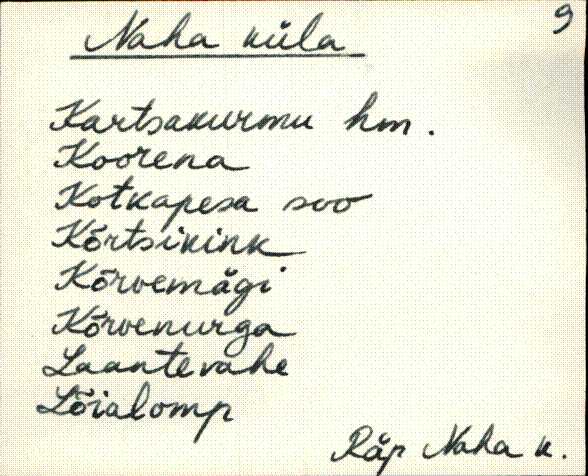 9
Naha küla
Kartsakurmu hm.
Koorena
Kotkapesa soo
Kõrtsikink
Kõrvemägi
Kõrvenurga
Laantevahe
Lõialomp
Räp Naha k.